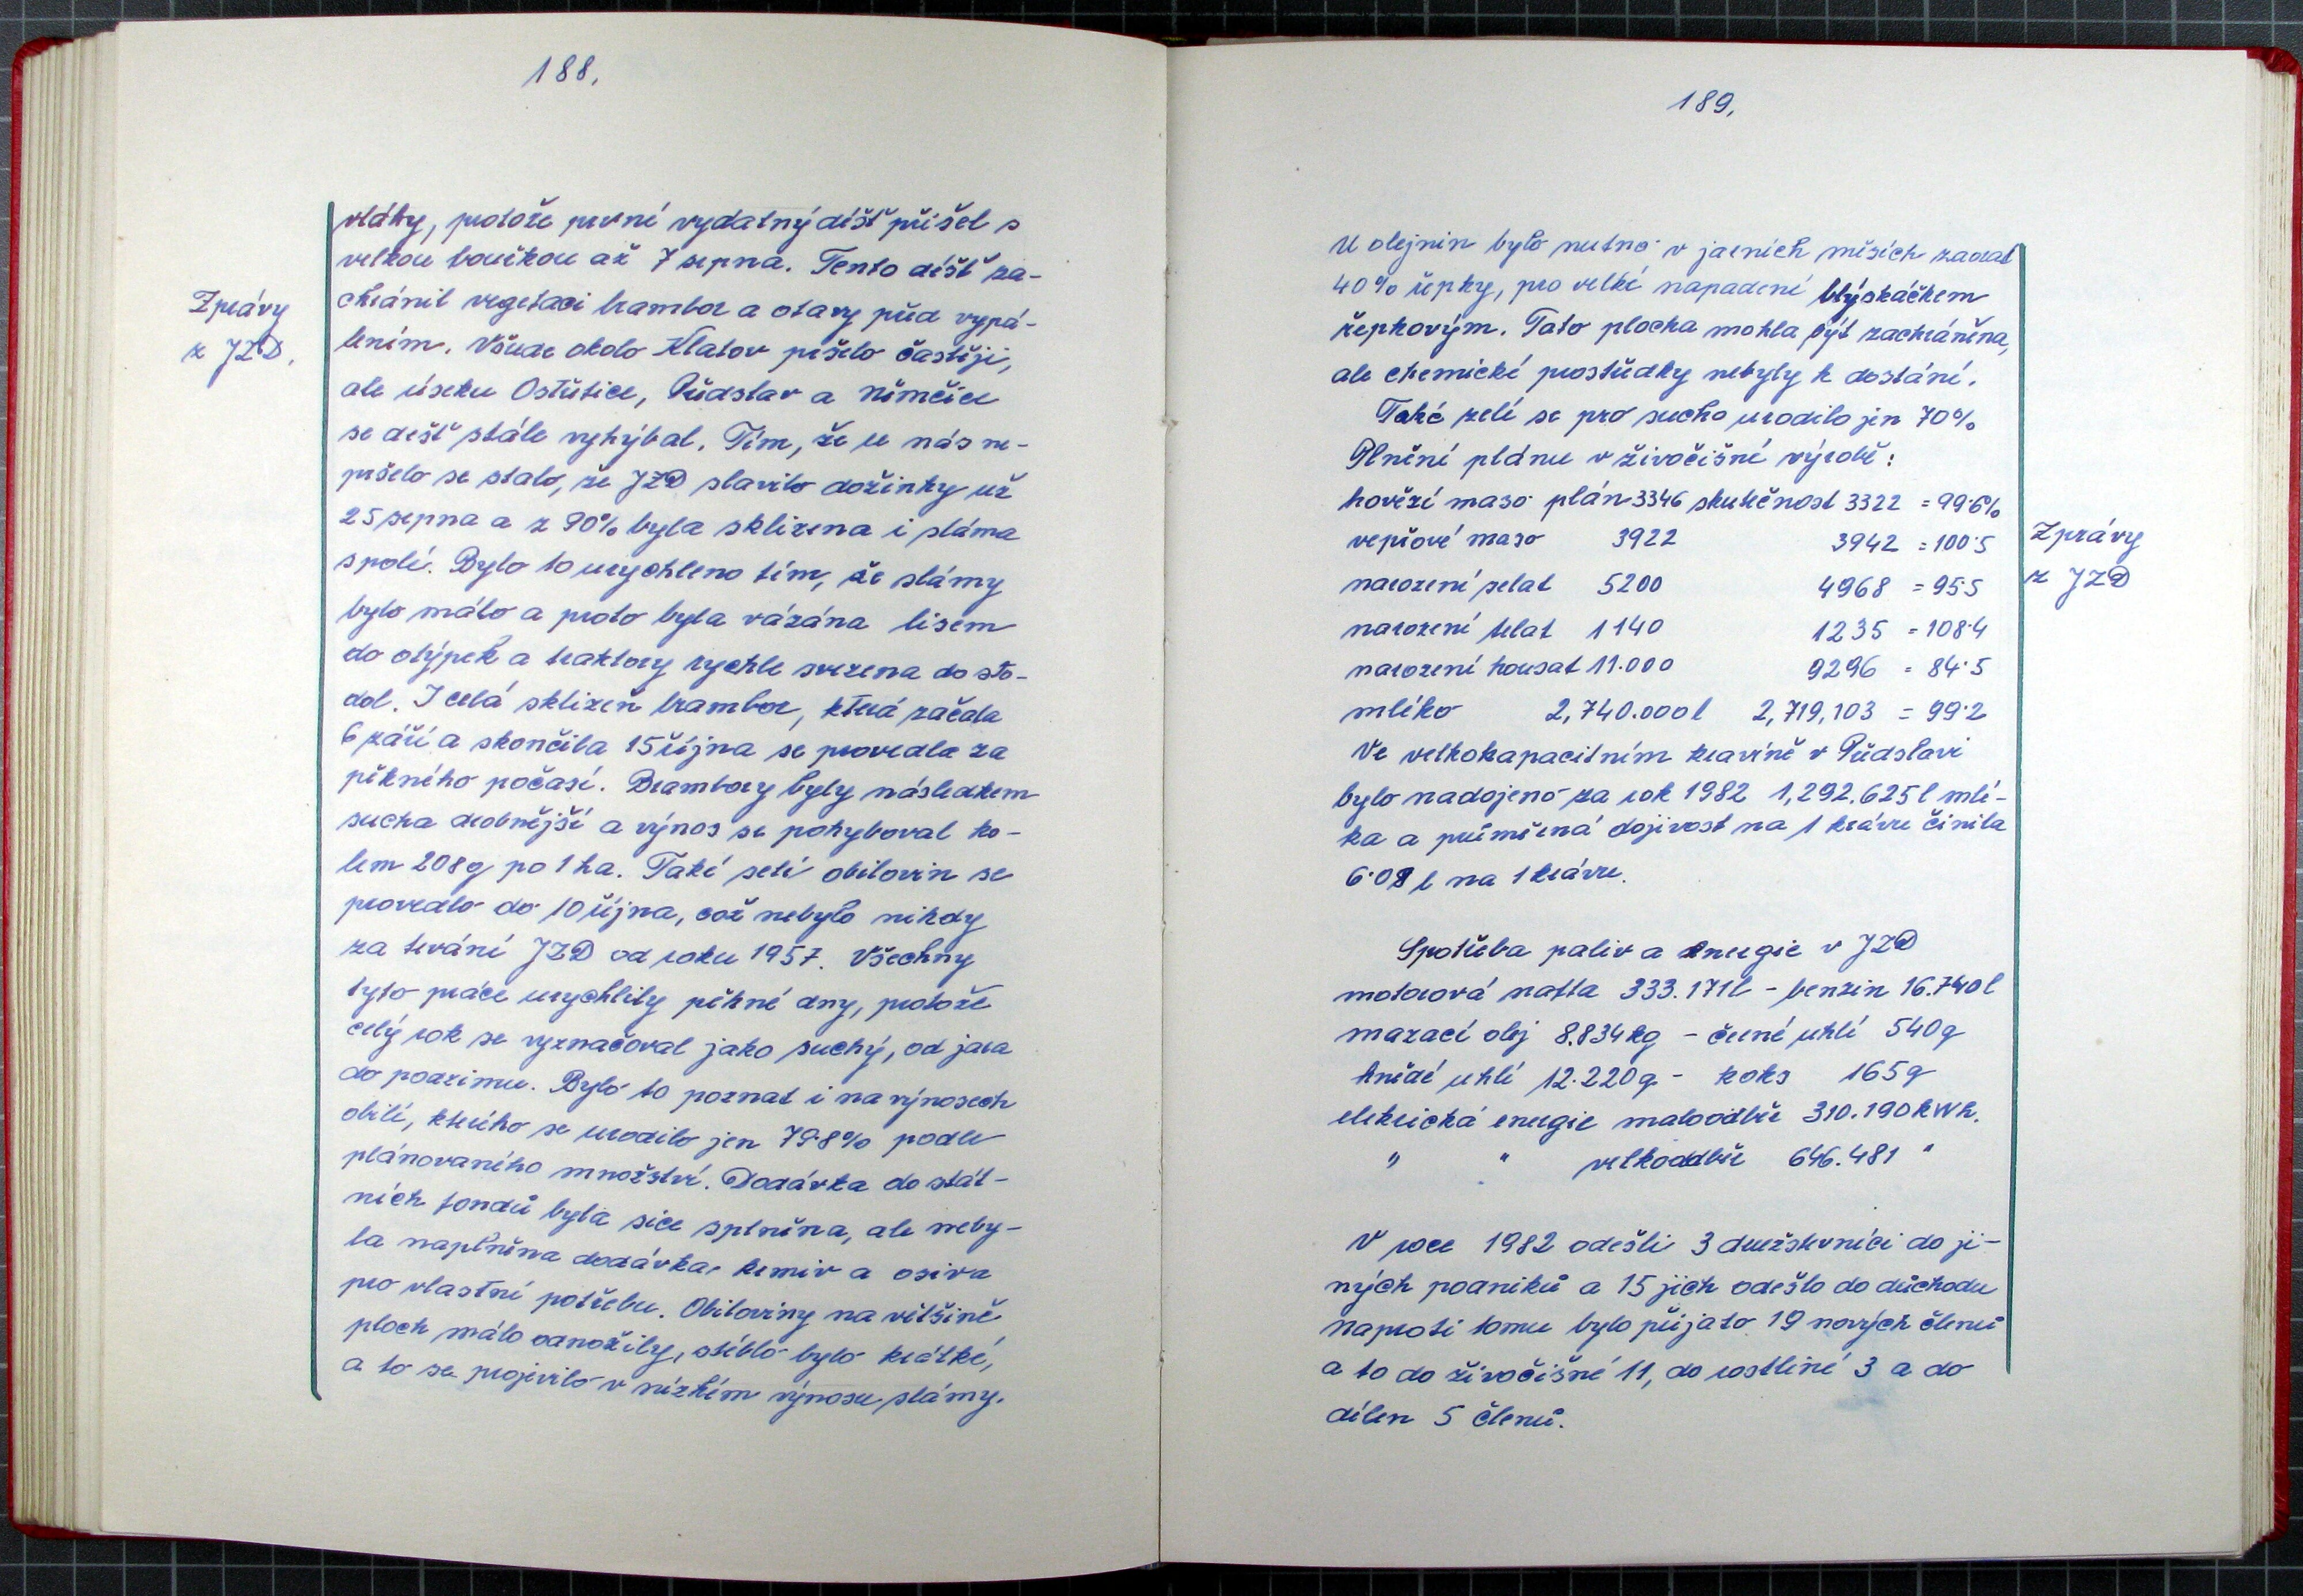 188.
Zprávy
z JZD.
vláhy, protože první vydatný déšť přišel s
velkou bouřkou až 7 srpna. Tento déšť za-
chránil vegetaci brambor a otavy před vypá-
lením. Všude okolo Klatov pršelo častěji,
ale úseku Ostřetice, Předslav a Němčice
se dešť stále vyhýbal. Tím, že u nás ne-
pršelo se stalo, že JZD slavilo dožinky už
25 srpna a z 90% byla sklizena i sláma
s polí. Bylo to urychleno tím, že slámy
bylo málo a proto byla vázána lisem
do otýpek a traktory rychle svezena do sto-
dol. I celá sklizeň brambor, která začala
6 září a skončila 15 října se provedla za
pěkného počasí. Brambory byly následkem
sucha drobnější a výnos se pohyboval ko-
lem 208 q po 1 ha. Také setí obilovin se
provedlo do 10 října, což nebylo nikdy
za trvání JZD od roku 1957. Všechny
tyto práce urychlily pěkné dny, protože
celý rok se vyznačoval jako suchý, od jara
do podzimu. Bylo to poznat i na výnosech
obilí, kterého se urodilo jen 79·8% podle
plánovaného množství. Dodávka do stát-
ních fondů byla sice splněna, ale neby-
la naplněna dodávka krmiv a osiva
pro vlastní potřebu. Obiloviny na většině
ploch málo odnožily, stéblo bylo krátké,
a to se projevilo v nízkém výnosu slámy.
189.
U olejnin bylo nutno v jarních měsích zaorat
40% řepky, pro velké napadení blýskáčkem
řepkovým. Tato plocha mohla být zachráněna,
ale chemické prostředky nebyly k dostání.
Také zelí se pro sucho urodilo jen 70%
Plnění plánu v živočišné výrobě:
hovězí maso plán 3346 skutečnost 3322 = 99·6%
vepřové maso 3922 3942 = 100·5
narození selat 5200 4968 = 95·5
narození telat 1140 1235 = 108·4
narození housat 11.000 9296 = 84·5
mléko 2,740.000 l 2,719,103 = 99·2
Ve velkokapacitním kravíně v Předslavi
bylo nadojeno za rok 1982 1,292.625 l mlé-
ka a průměrná dojivost na 1 krávu činila
6·08 l na 1 krávu.
Zprávy
z JZD
Spotřeba paliv a energie v JZD
motorová nafta 333.171 l - benzin 16.740 l
mazací olej 8.834 kg - černé uhlí 540 q
hnědé uhlí 12.220 q - koks 165 q
elekrická energie maloodběr 310.190 kWh.
" " velkoodběr 646.481 "
V roce 1982 odešli 3 družstevníci do ji-
ných podniků a 15 jich odešlo do důchodu
naproti tomu bylo přijato 19 nových členů
a to do živočišné 11, do rostliné 3 a do
dílen 5 členů.